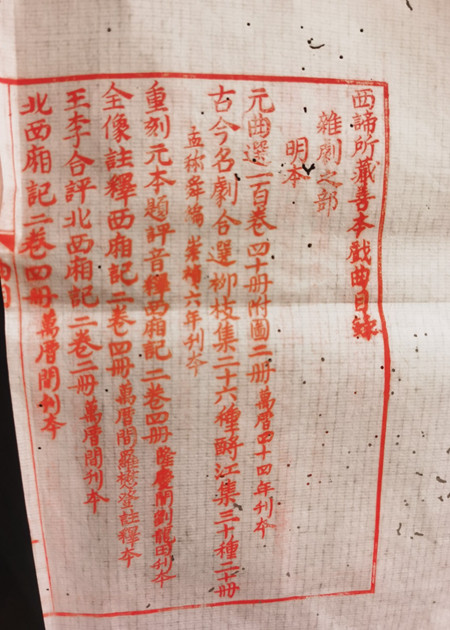 西諦所藏善本戲曲目錄
雜劇之部
明本
元曲選一百卷四十册附圖二册萬曆四十四年刊本
古今名劇合選柳枝集二十六種酹江集三十種二十册
孟稱舜編 崇禎六年刊本
重刻元本題評音釋西廂記二卷四册隆慶間劉龍田刊本
全像註釋西廂記二卷四册萬曆間羅懋登註釋本
王李合評北西廂記二卷二册萬曆間刊本
北西廂記二卷四册萬曆間刊本